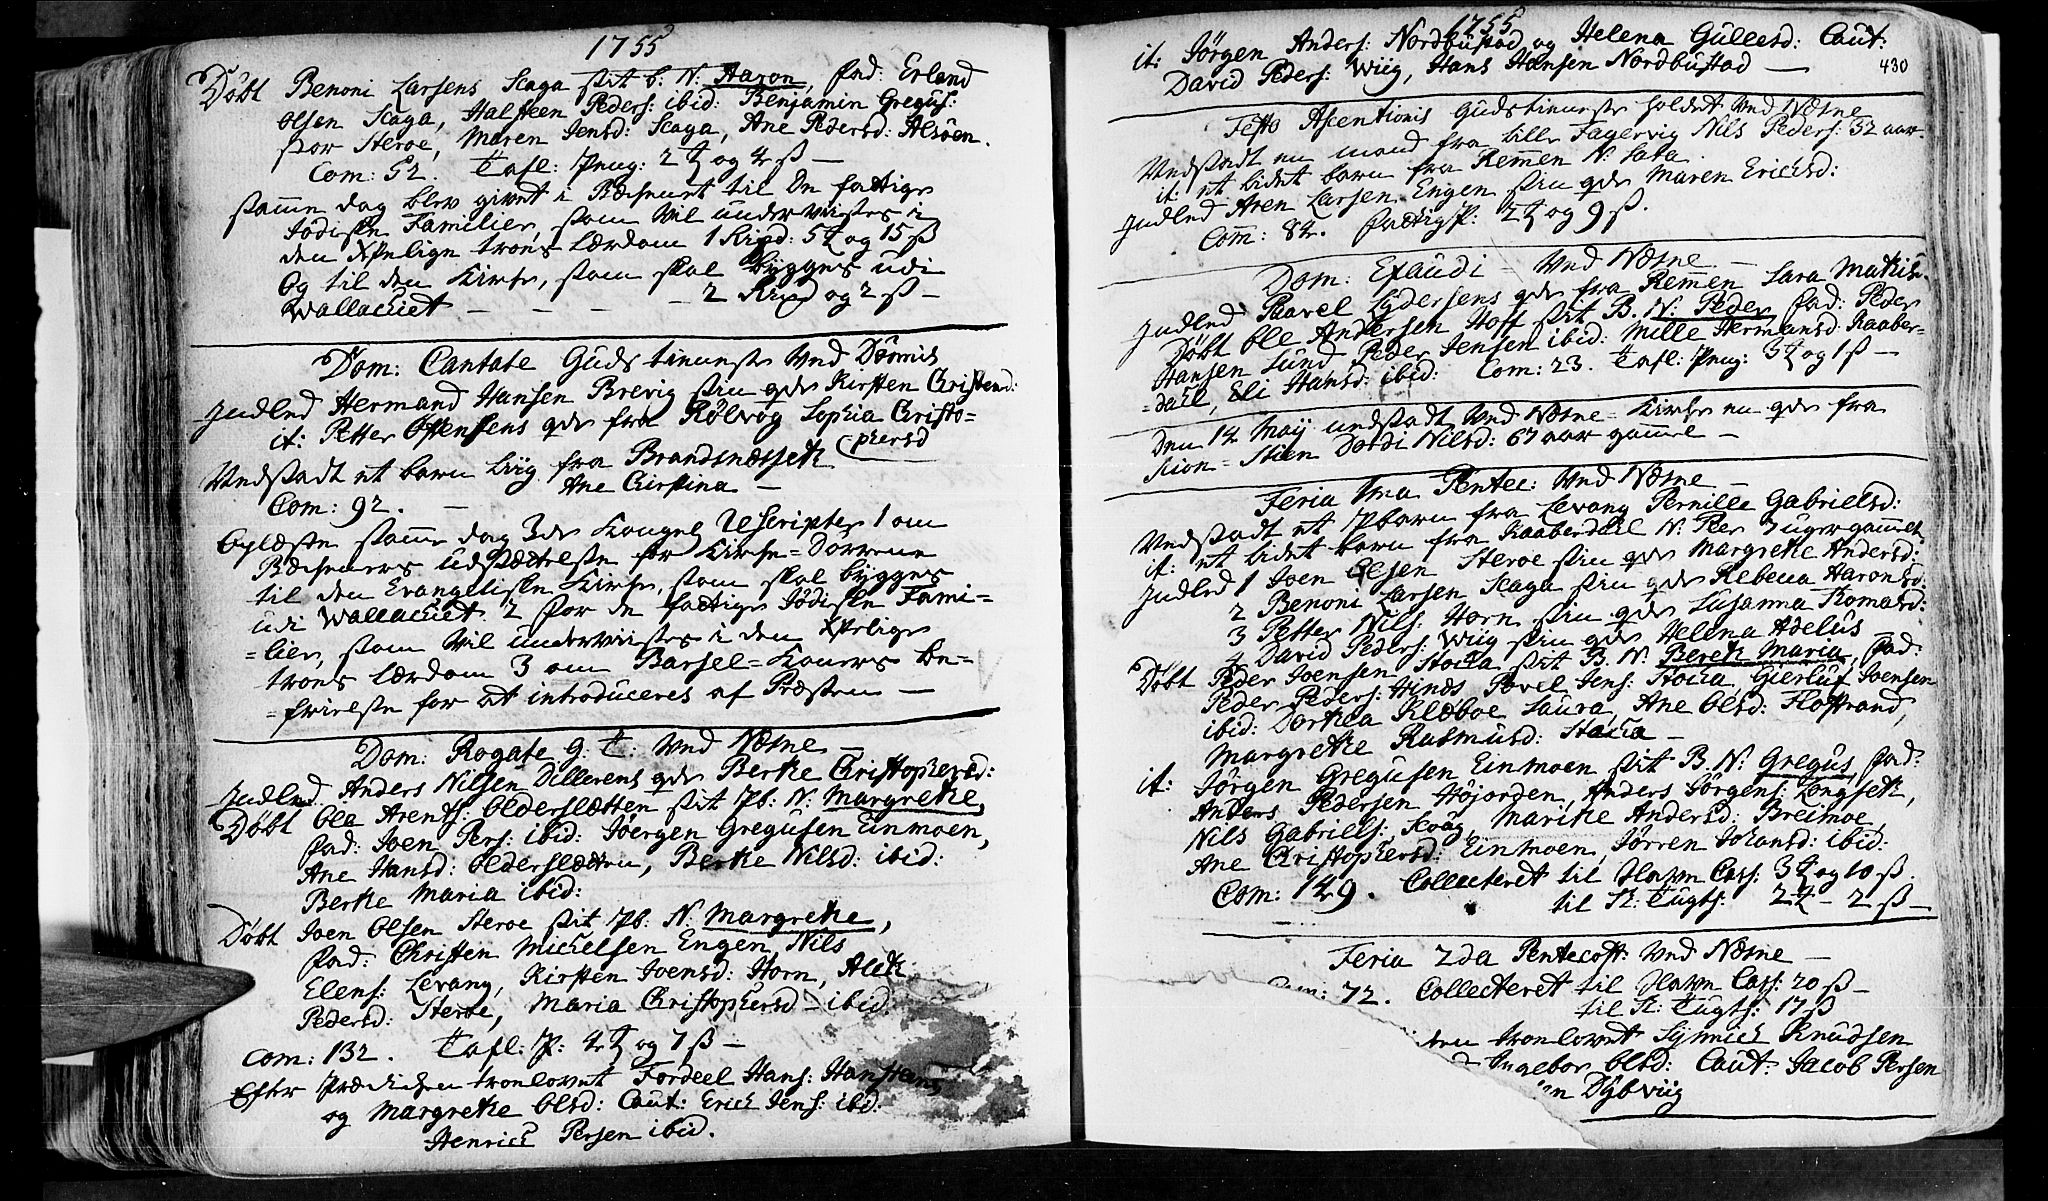 1755
Døbt Benoni Larsens Scaga sit b. N: Aaron, fad: Erland
Olsen Scaga, Halsteen Peders: ibid: Benjamin Gregus:
stor Steroe, Maren Jensd: Scaga, Ane Pedersd: Alsöen.
Com: 52. Tafl: Peng: 2 og 4 ß —
samme dag blev givet i Becknet til de fattige
Jødiske Familier, som vil underviises i
den Xstelige troes lærdom 1 Rixd: 5 og 15 ß
Og til den Kirke, som skal bygges udi
Wallachiet — — — 2 Rixd og 2 ß —
Dom: Cantate Guds tieneste ved Dønnis
Indled Hermand Hansen Brevig sin qde Kirsten Christend:
it: Petter Ostensens qde fra Rølvog Sophia Christo=
phersd
Vedstadt et barn liig fra Brandsnæsset
Ane Chirstina —
Com: 92. —
Oplæste samme dag 3de Kongel Rescripter 1 om
Beckeners udsættelse for Kirke=Dørrene
til den Evangeliske Kirke, som skal bygges
udi Wallachiet 2 for de fattige Jødiske Fami=
=lier, som vil underviises i den Xstelige
troes lærdom 3 om Barsel=Koners be=
=frielse for at introduceres af Præsten —
Dom: Rogate g. t: ved Næsne —
Indled Anders Nilsen Dillerens qde Berte Christophersd:
Døbt Ola Arents: Olderslætten sit Pb: N: Margrete,
fad: Joen Pers: ibid: Jöergen Gregusen Einmoen,
Ane Hansd: Olderslætten, Berte Nilsd: ibid:
Berte Maria ibid:
Døbt Joen Olsen Steroe sit Pb: N: Margrete,
fad: Christen Michelsen Engen, Nils
Elens: Levang, Kirsten Joensd: Horn, Alet
Pedersd: Steroe, Maria Christophersd — ibid:
Com: 132. Tafl: P: 4 og 7 ß —
Efter Prædicken troelovet Fordeel Hans: Hanstang
og Margrete Olsd: Caut: Erich Jens: ibid:
Henrich Persen ibid.
1755
430
it: Jörgen Anders: Nordbustad og Helena Gullesd: Caut:
David Peders: Wiig, Hans Hansen Nordbustad —
Festo Ascentionis Gudstieneste holdet ved Næsne
Vedstadt en mand fra lille Fagervig Nils Peders: 32 aar.
it: et lidet barn fra Remmen N: Lata.
Indled Aren Larsen Engen sin qde Maren Erichsd:
Com: 84. fattigP: 2 og 9 ß.
Dom: Exaudi — ved Næsne —
Indled Paavel Lydersens qde fra Remmen Sara Mathis:
Døbt Ole Andersen Hoff sit B. N: Peder fad: Peder
Hansen Sund Peder Jensen ibid: Mille Hermansd: Raaber=
=dall, Eli Hansd: ibid: Com: 23. Tafl: Peng: 3 og 1 ß —
Den 14 Maij vedstadt ved Næsne=Kirke en qde fra
Dordi Nilsd: 67 aar gammel —
Feria 1ma Pentec: ved Næsne —
Vedstadt et Pbarn fra Levang Pernille Gabrielsd:
it: et lidet barn fra Raaberdall N: Peer 7 uger gammel
Indled 1 Joen Olsen Steroe sin qde Margrete Andersd:
2 Benoni Larsen Scaga sin qde Rebecca Haronsd:
3 Petter Nils: Horn sin qde Susanna Thomasd:
4 David Peders: Wiig sin qde Helena Adelus
Døbt Peder Joensen Stocka sit B. N: Beret Maria, fad:
Peder Peders: Hinæs Povel Jens: Stocka Gierluf Joensen
ibid: Dorthea Klæboe Laura, Ane Olsd: Flostrand,
Margrete Rasmusd: Stocka —
it: Jörgen Gregusen Einmoen sit B. N: Gregus fad:
Anders Pedersen Höjorden, Anders Jörgens: Langset,
Nils Gabriells: Scaag, Marite Andersd: Breimoe,
Ane Christophersd: Einmoen, Jörren Johansd: ibid:
Com: 149. Collecteret til Hawn Cass: 3 og 10 ß.
til T: Tugts: 2 — 2 ß —
Feria 2da Pentecost: ved Næsne —
Com: 72. Collecteret til Hawn Cass: 20 ß —
til T: Tugts: 17 ß
troelovet Synnick Knudsen
Ingebor Olsd: Caut: Jacob Persen
Dybviig